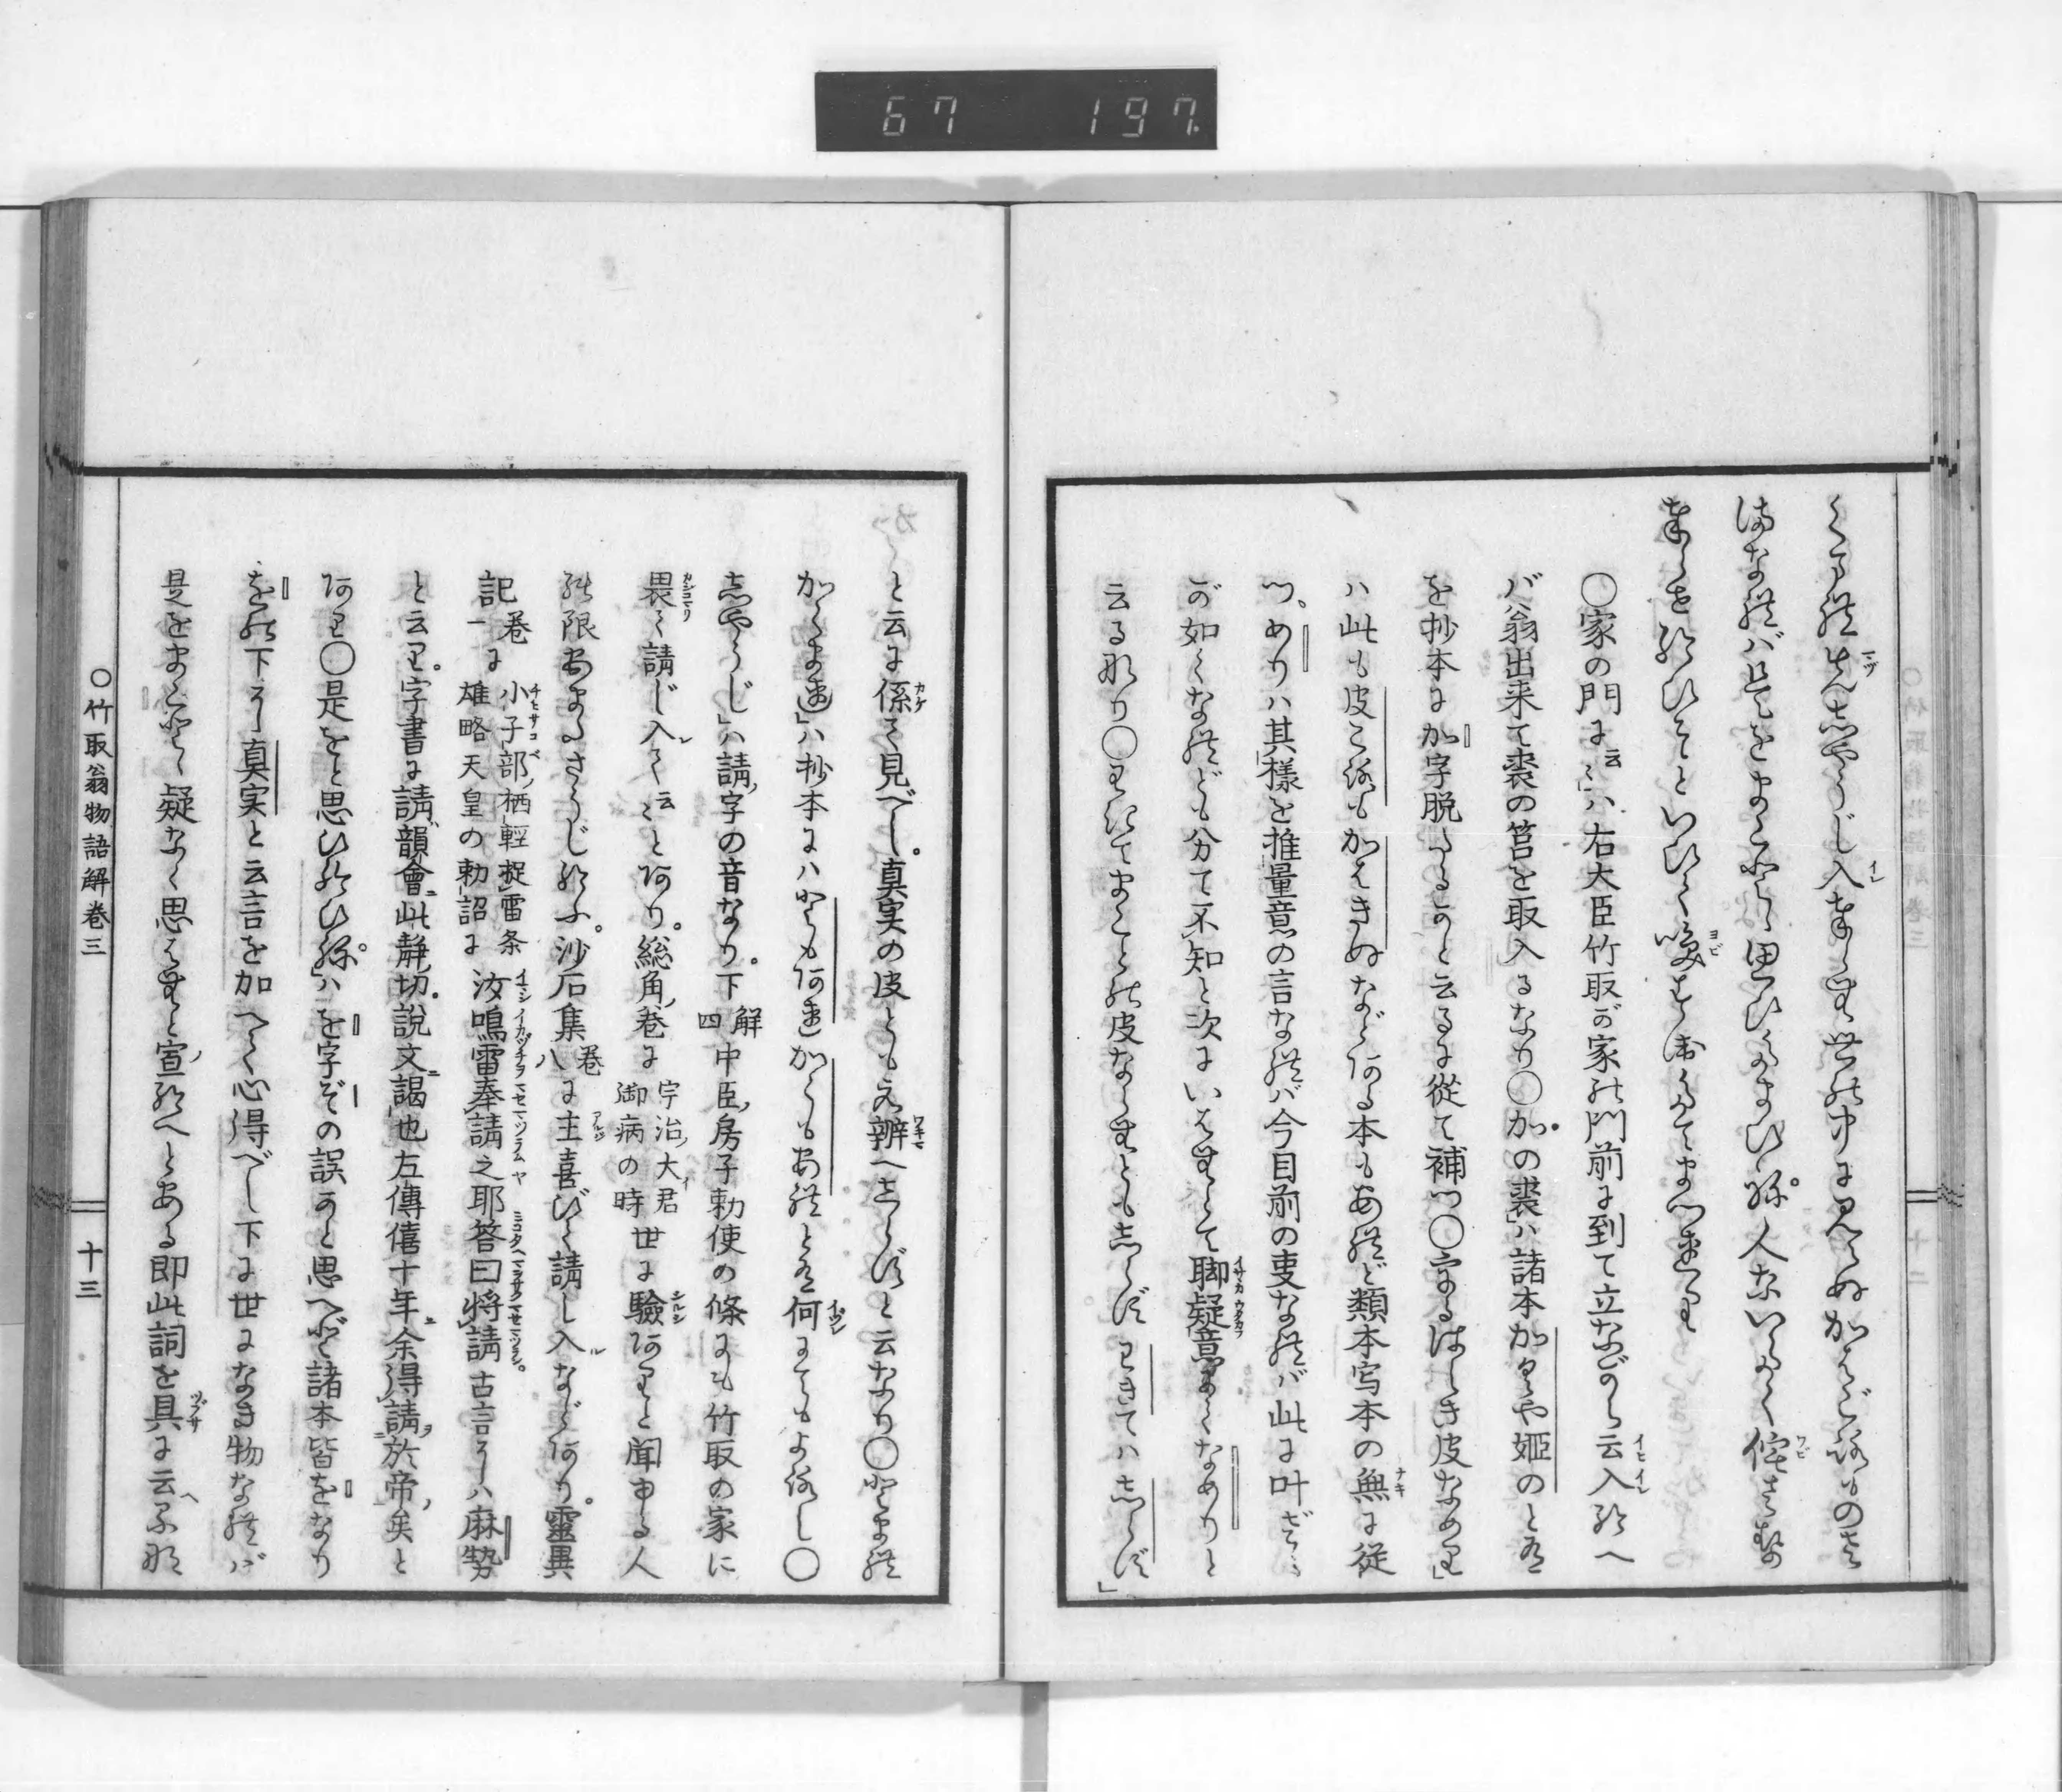 67 197
くまれ先志やうじ入奉らむ世の中に見えぬかはごろものさ
まなればこれをまことゝ思ひ給ひね人ないたく侘させ
奉らせ給ひそといひて喚すゑ奉れり
〇家の門に云々ハ右大臣竹取が家の門前に到て立ながら云入給へ
バ翁出来て裘の筥を取入るなり〇加の裘ハ諸本かぐや姫のと有
を抄本に加字脱たるかと云るに従て補つ〇うるはしき皮なめり
ハ此も皮ころも加はきぬなどある本もあれど類本写本の無に従
つめりハ其様を推量意の言なれバ今目前の事なれバ此に叶ざる
が如くなれども分て不知と次にいはむとて聊疑意にてなめりと
云るなり〇わきてまことの皮ならむとも志らずわきてハ志らず
と云に係て見べし真実の皮とも え辨へ志らずと云なり〇とまれ
かくまれハ抄本にハともあれかくもあれと有何にてもよろし〇
志やうじハ請字の音なり下解四中臣房子勅使の條にも竹取の家に
畏て請じ入て云々とあり総角巻に宇治大君御病の時世に驗ありと聞ゆる人
の限あまたさうじ給ふ沙石集巻八に主喜びて請し入などあり靈異
記巻一に小子部栖輕捉雷条雄略天皇の勅詔に汝鳴雷奉請之耶答曰将請古言にハ麻勢
と云り字書に請韻會此静切説文謁也左傳僖十年余得請於帝矣と
あり〇是をと思ひ給ひねハを字ぞの誤かと思へど諸本皆をなり
をの下に真実と云言を加へて心得べし下に世になき物なれバ
是をまことゝ疑なく思はむと宣給へとある即此詞を具に云るな
〇竹取翁物語解巻三
十三